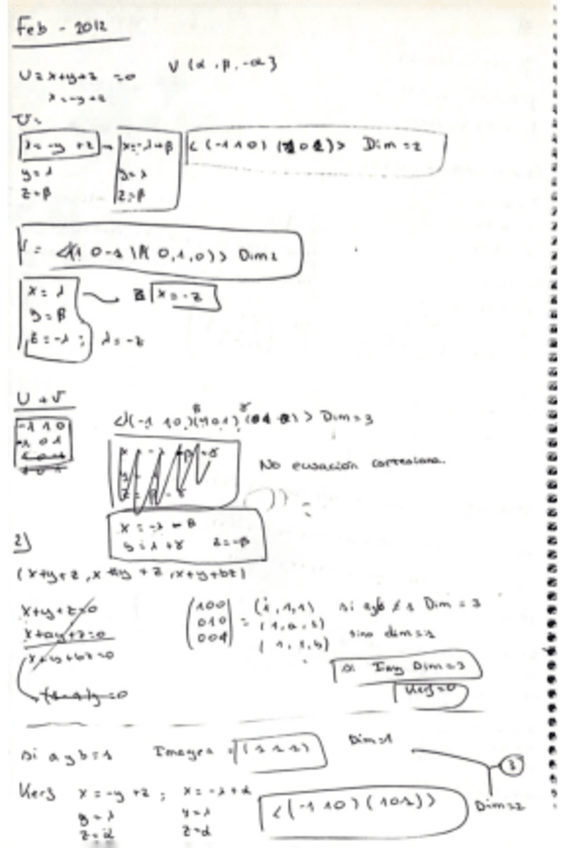 Feb - 2012
U = x+y+z = 0 V (α, β, -α}
x = -y + z
U =
x = -y + z → x = -λ + β <(-1 1 0) (1 0 1)> Dim = 2
y = λ y = λ
z = β z = β
V = <(1 0 -1) (0, 1, 0)> Dim 2
x = λ x = -z
y = β
z = -λ ; λ = -z
U + V
-1 1 0
1 0 1
<(-1 1 0) (1 0 1) > Dim = 3
No ecuación cartesiana.
y = λ + γ z = -β
2)
(x+y+z, x+ay+z, x+y+bz)
x+y+z=0
x+ay+z=0
x+y+bz=0
(1 0 0
0 1 0
0 0 1) = (1, 1, 1) si a y b ≠ 1 Dim = 3
(1, a, 1) sino dim = 1
(1, 1, b)
Img Dim = 3
Kerf = 0
si a y b = 1 Imagen = (1 1 1) Dim = 1
3
Kerf x = -y + z ; x = -λ + α <(-1 1 0) (1 0 1)> Dim = 2
y = λ y = λ
z = α z = α